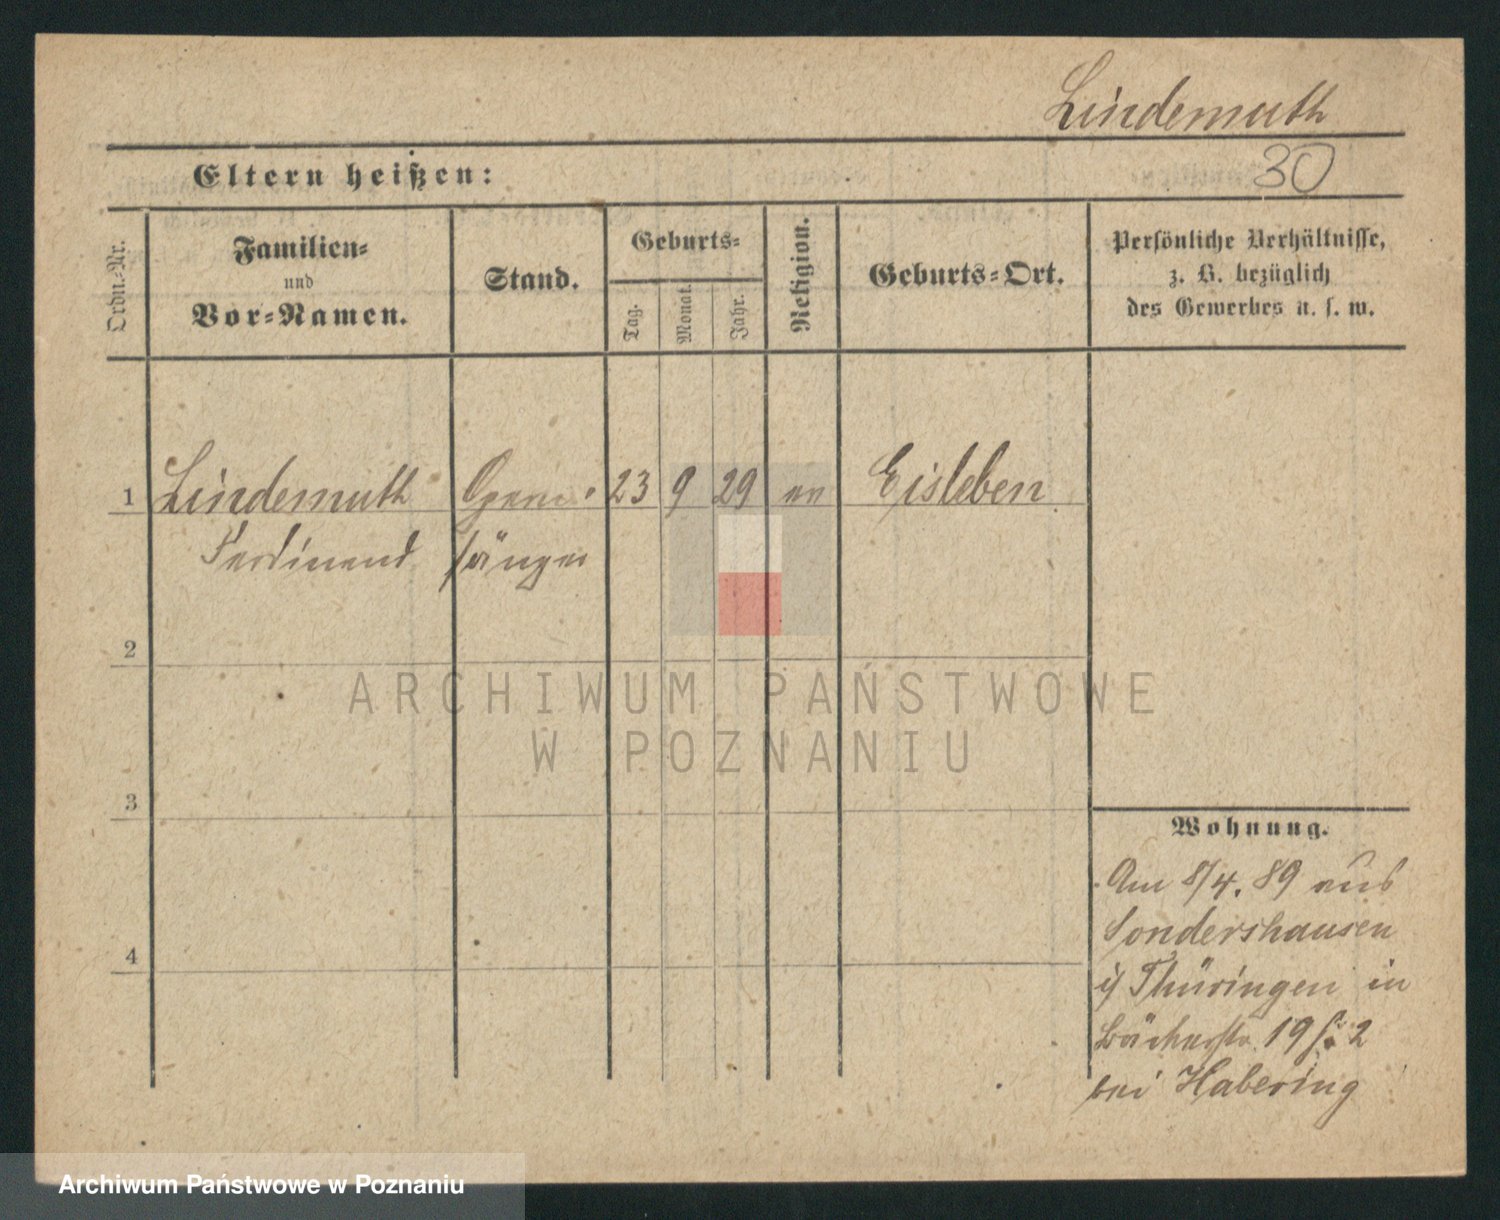 Lindemuth
Eltern heißen:
30
Ordn.-Nr.
Familien-
und
Vor-Namen.
Stand.
Geburts-
Tag.
Monat.
Jahr.
Religion.
Geburts-Ort.
Persönliche Verhältnisse,
z. B. bezüglich
des Gewerbes u. s. w.
1 Lindemuth Opern- 23 9 29 ev Eisleben
Ferdinand sänger
2
3
4
Wohnung.
Am 8/4. 89 aus
Sondershausen
i/ Thüringen in
Bäckerstr. 19 2
bei Habering
ARCHIWUM PAŃSTWOWE
W POZNANIU
Archiwum Państwowe w Poznaniu